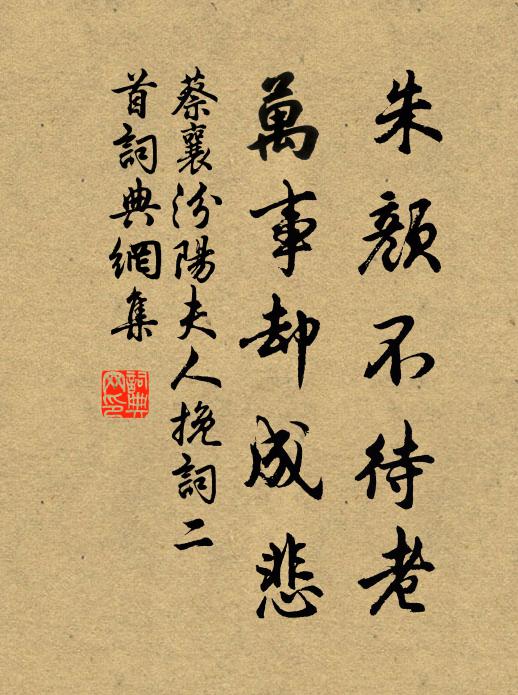 朱顏不待老
萬事却成悲
蔡襄汾陽夫人挽詞二
首詞典網集
詞典
網印